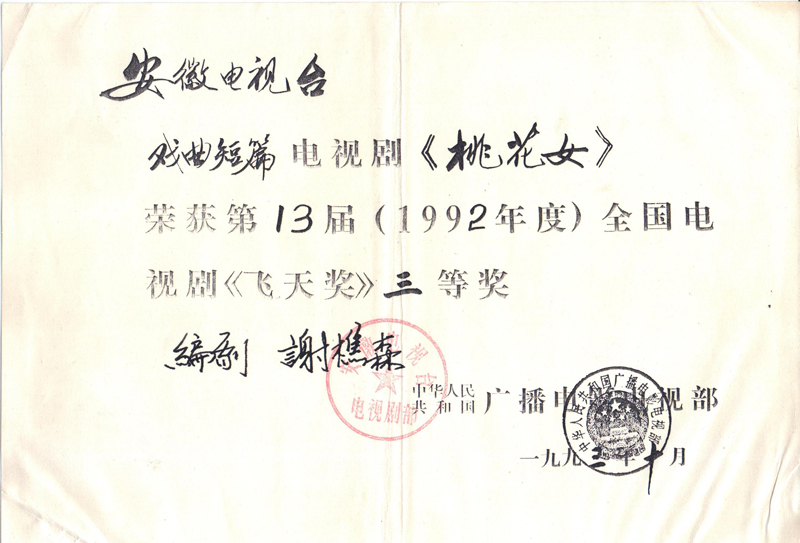 安徽电视台
戏曲短篇电视剧《桃花女》
荣获第13届(1992年度)全国电
视剧《飞天奖》三等奖
编剧 謝樵森
安徽电视台
电视剧部
中华人民
共和国 广播电影电视部
中华人民共和国广播电影电视部
一九九三年十月